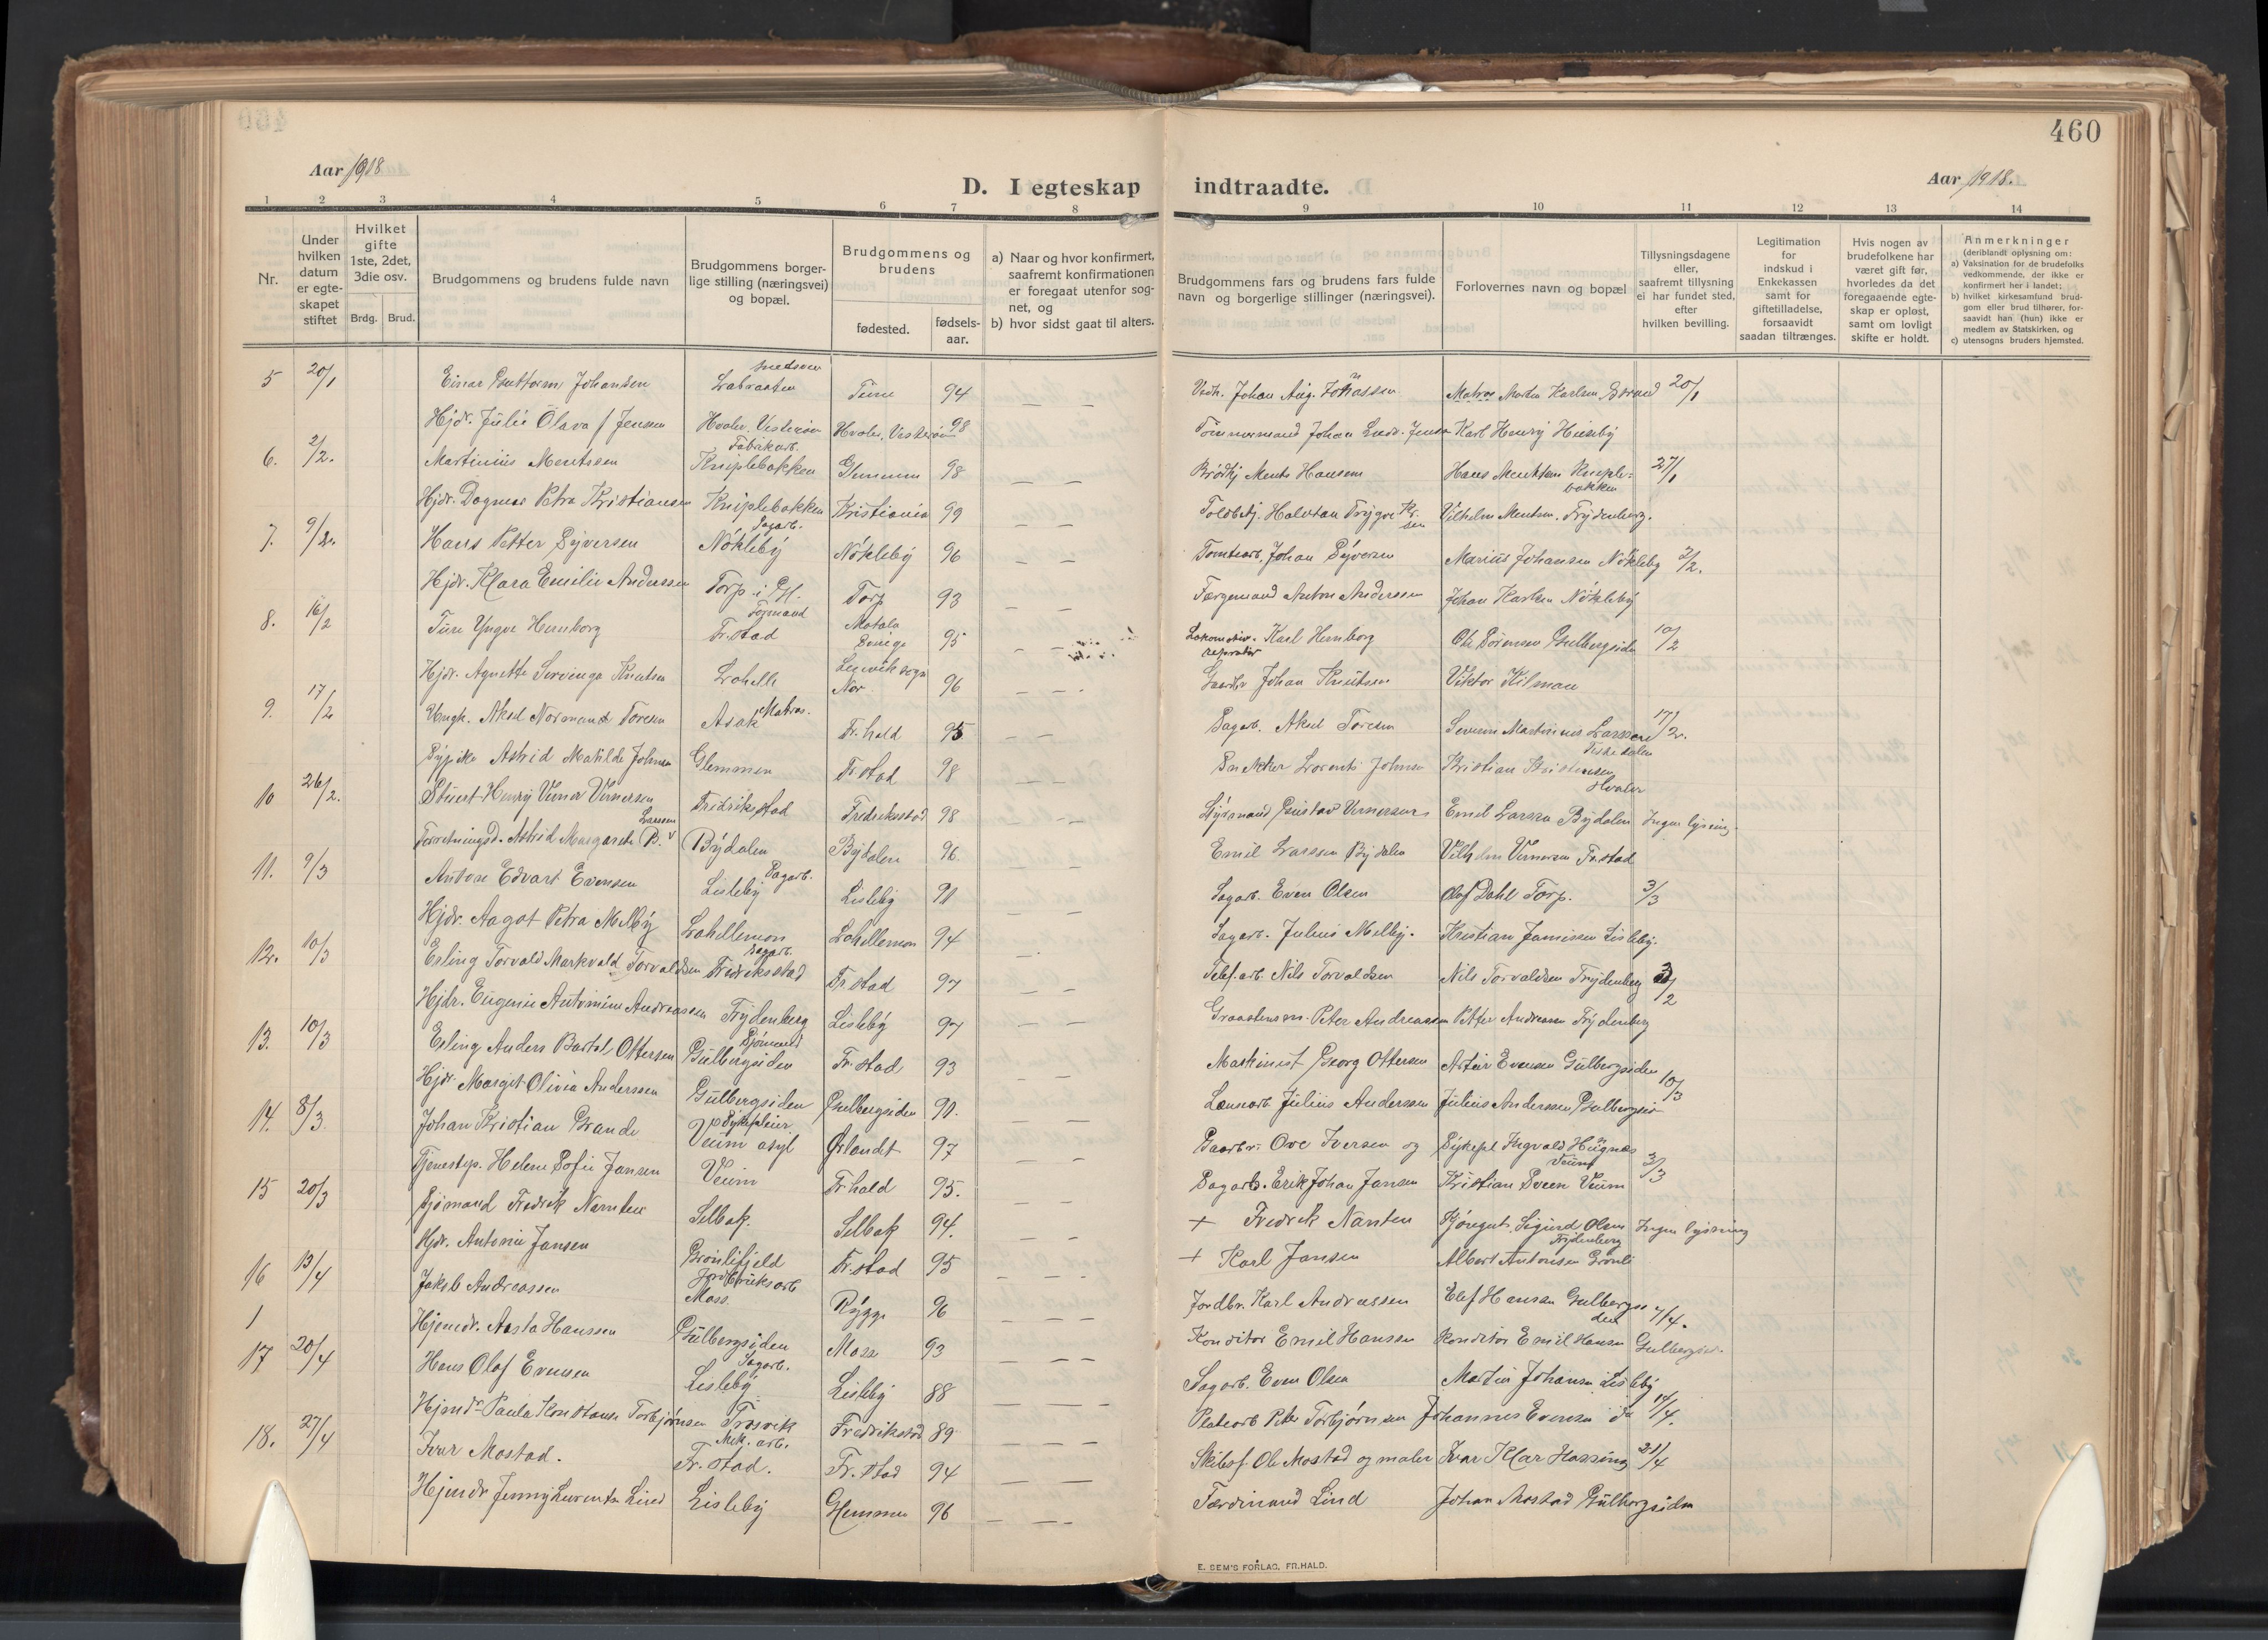 460
Aar 1918
D. I egteskap indtraadte.
Aar 1918.
1 2 3 4 5 6 7 8 9 10 11 12 13 14
Nr.
Under hvilken datum er egteskapet stiftet
Hvilket gifte 1ste, 2det, 3die osv.
Brdg. Brud.
Brudgommens og brudens fulde navn
Brudgommens borgerlige stilling (næringsvei) og bopæl.
Brudgommens og brudens
fødested.
fødselsaar.
a) Naar og hvor konfirmert, saafremt konfirmationen er foregaat utenfor sognet, og
b) hvor sidst gaat til alters.
Brudgommens fars og brudens fars fulde navn og borgerlige stillinger (næringsvei).
Forlovernes navn og bopæl
Tillysningsdagene eller, saafremt tillysning ei har fundet sted, efter hvilken bevilling.
Legitimation for indskud i Enkekassen samt for giftetilladelse, forsaavidt saadan tiltrænges.
Hvis nogen av brudefolkene har været gift før, hvorledes da det foregaaende egteskap er opløst, samt om lovligt skifte er holdt.
Anmerkninger
(deriblandt oplysning om:
a) Vaksination for de brudefolks vedkommende, der ikke er konfirmert her i landet;
b) hvilket kirkesamfund brudgom eller brud tilhører, forsaavidt han (hun) ikke er medlem av Statskirken, og
c) utensogns bruders hjemsted.
5 20/1 Einar Guttorm Johansen Labraaten Tune 94 Johan Aug. Matros Martin Karlsen 20/1
Hjdr. Julie Olava Jensen Hvaler, Vesterøen Hvaler, Vesterøen 98 Tømmermand Johan Ludv. Jensen Karl Henry Huseby
6. 2/2. Martinius Mentssen Fabrikarb. Kniplebakken Glemmen 98 Ments Hansen Hans Mentssen Kniplebakken 27/1
Hjdr. Dagmar Petra Kristiansen Kniplebakken Kristiania 99 Toldbetj. Halvtan Trygve Kr.sen Vilhelm Mentsen. Frydenberg.
7. 9/2. Hans Petter Syversen Sagarb. Nøkleby Nøkleby 96 Tomtearb. Johan Syversen Marius Johansen Nøkleby 3/2.
Hjdr. Klara Emilie Andersen Torp i Bg. Torp 93 Færgemand Anton Anderssen Johan Karlsen Nøkleby
8. 16/2 Ture Yngve Hernborg Formand Fr.stad Motala Sverige 95 Lokomotivreparatør Karl Hernborg Ole Sørensen Gulbergsiden 10/2
Hjdr. Agnette Severinga Knutsen Lahelle Nor. 96 Gaardbr Johan Knutsen Viktor Kilman
9. 17/2 Ungk. Aksel Normand Toresen Matros. Asak Fr. hald 95 Sagarb. Aksel Toresen Severin Martinius Larssen 17/2.
Sypike Astrid Matilde Johnsen Glemmen Fr. stad 98 Snekker Lorents Johnsen Kristian Kristensen Hvaler
10 26/2. Stuert Henry Verner Vernersen Fredrikstad Fredriksstad 98 Styrmand Gustav Vernersen Emil Larssen Bydalen Ingen lysning.
Forretningsd. Astrid Margarete B. Larssen Bydalen Bydalen 96 Emil Larssen Bydalen Vilhelm Vernersen Fr.stad
11. 9/3 Anton Edvart Evensen Sagarb. Lisleby Lisleby 91 Sagarb. Even Olsen Olaf Dahl Torp. 3/3
Hjdr. Aagot Petra Melby Lahellemoen Lahellemoen 94 Sagarb. Julius Melby. Kristian Jamissen Lisleby.
12. 10/3 Erling Torvald Markvald Torvaldsen Sagarb. Fredriksstad Fr. stad 97 Telef. arb. Nils Torvaldsen Nils Torvaldsen Frydenberg
Hjdr. Eugenie Antonine Andreassen Frydenberg Lisleby 97 Graastensm. Peter Andreassen Petter Andreassen Frydenberg
13. 10/3 Erling Anders Bartol Ottersen Sjømand Gulbergsiden Fr. stad 93 Maskinist Georg Ottersen Artur Evensen Gulbergsiden 10/3
Hjdr. Margit Olivia Anderssen Gulbergsiden Gulbergsiden 90. Lænsearb. Julius Anderssen Julius Anderssen Gulbergsid.
14. 8/3 Johan Kristian Grande Sykepleier Veum asyl Ørlandet 97 Gaardbr. Ove Iversen og Sykepl Ingvald Veum 3/3
Tjenestep. Helene Sofie Jansen Veum Fr. hald 95. Sagarb. Erik Johan Jansen Kristian Sveen Veum
15 20/3 Sjømand Fredrik Nanten Selbak. Selbak 94. + Fredrik Nanten Sigurd Olsen Frydenberg Ingen lysning
Hjdr. Antonie Jansen Grønlifjeld Fr. stad 95 + Karl Jansen Albert Antonsen Grønli
16 13/4 Jakob Andreassen Jordbruksarb Moss Rygge 96 Jordbr. Karl Andreassen Elef Hansen Gulbergsiden 7/4.
Hjemdr. Aasta Hanssen Gulbergsiden Moss 93 Konditor Emil Hanssen Konditor Emil Hansen Gulbergsid.
17 20/4 Hans Olaf Evensen Sagarb. Lisleby Lisleby 88 Sagarb. Even Olsen Martin Johansen Lisleby 14/4.
Hjemdr Paula Konstanse Torbjørnsen Trosvik Fredrikstad 89 Platearb Peter Torbjørnsen Johannes Evensen do
18. 27/4 Ivar Mostad. Mek. arb. Fr. stad. Fr. stad 94 Ole Mostad og maler Ivar Klar Hassing 21/4
Hjemdr Jenny Lurentse Lind Lisleby Glemmen 96 Færdinand Lind Johan Mostad Gulbergsiden
E. SEM'S FORLAG, FR.HALD.